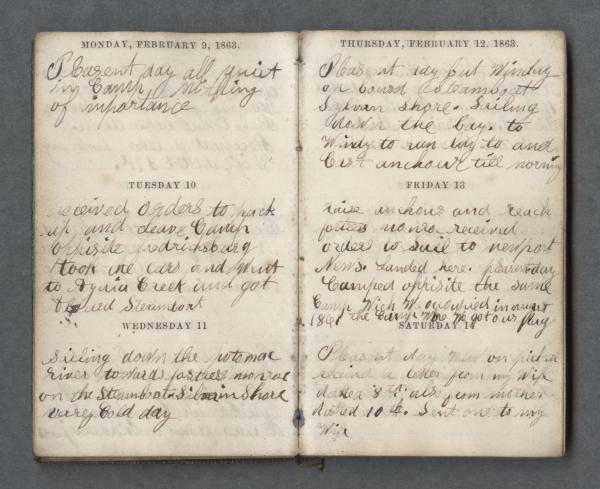 MONDAY, FEBRUARY 9, 1863.
Pleasent day all quiet
in Camp nothing
of importance
TUESDAY 10
received orders to pack
up and leave Camp
oppisite fedricksburg
took the cars and Went
to Aquia Creek and got
Steamboat
WEDNESDAY 11
Sailing down the potomac
river towards fortres monroe
on the Steamboat Silvan Shore
varey Cold day
THURSDAY, FEBRUARY 12. 1863.
Pleasent day but Winday
on board Steamboat
Sylvan Shore. Sailing
down the bay. to
Windy to run lay to and
Cast anchour till morning
FRIDAY 13
raise anchour and reach
monro received
orders to sail to newport
News. Landed here. pleasent day
Camped oppisite the same
Camp Wich We occupied in
186 the Camp We got our flag
SATURDAY 14
Pleasent day on picket
received a letter from my Wife
dated 8th also from mother
dated 10th. Sent one to my
Wife